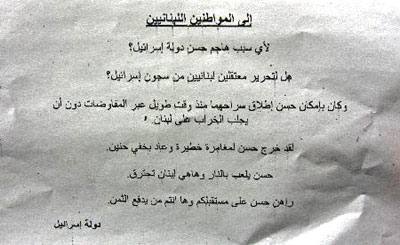 إلى المواطنين اللبنانيين
لأي سبب هاجم حسن دولة إسرائيل؟
هل لتحرير معتقلين لبنانيين من سجون إسرائيل؟
وكان بإمكان حسن إطلاق سراحهما منذ وقت طويل عبر المفاوضات دون أن
يجلب الخراب على لبنان.
لقد خرج حسن لمغامرة خطيرة وعاد بخفي حنين.
حسن يلعب بالنار وهاهي لبنان تحترق.
راهن حسن على مستقبلكم وها انتم من يدفع الثمن.
دولة إسرائيل